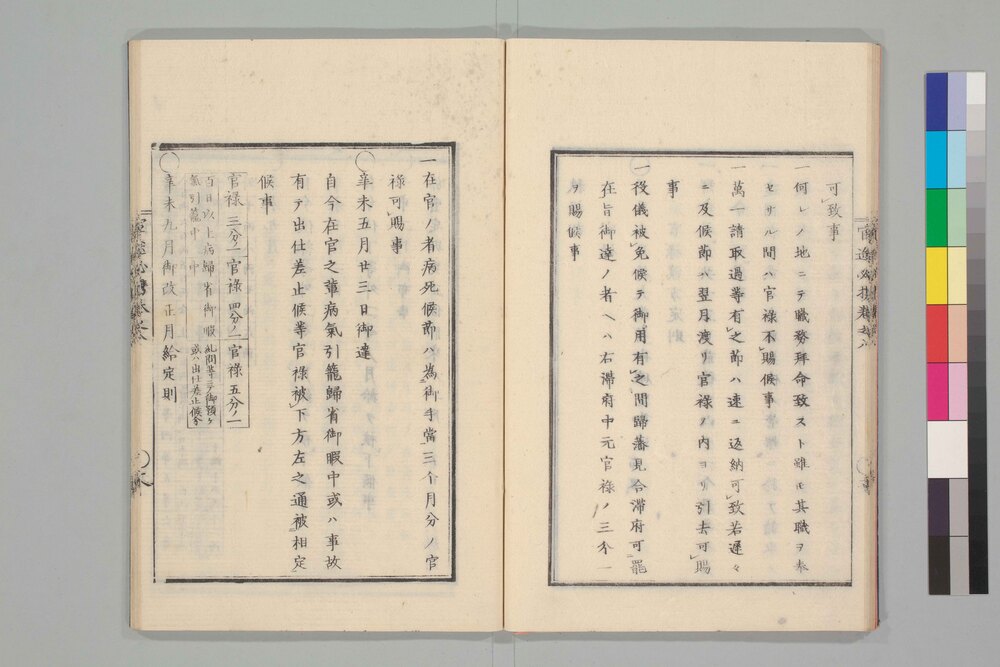 可致事
一何レノ地ニテ職務拜命致スト雖モ其職ヲ奉
セサル間ハ官禄不賜候事
一萬一請取過等有之節ハ速ニ返納可致若遲々
ニ及候節ハ翌月渡リ官禄ノ内ヨリ引去可賜
事
一後儀被免候テ御用有之間歸藩見合滞府可罷
在旨御達ノ者ヘハ右滞府中元官禄ノ三分一
ヲ賜候事
一在官ノ者病死候節ハ為御手當三ケ月分ノ官
禄可賜事
○辛未五月廿三日御達
自今在官之輩病氣引籠歸省御暇中或ハ事故
有テ出仕差止候等官禄被下方左之通被相定
候事
官禄三分ノ一官禄四分ノ二官禄五分ノ一
百日以上病氣引籠中
歸省御暇中
糺問等ニテ御預ケ
或ハ出仕差止候分
○辛未九月御改正月給定則